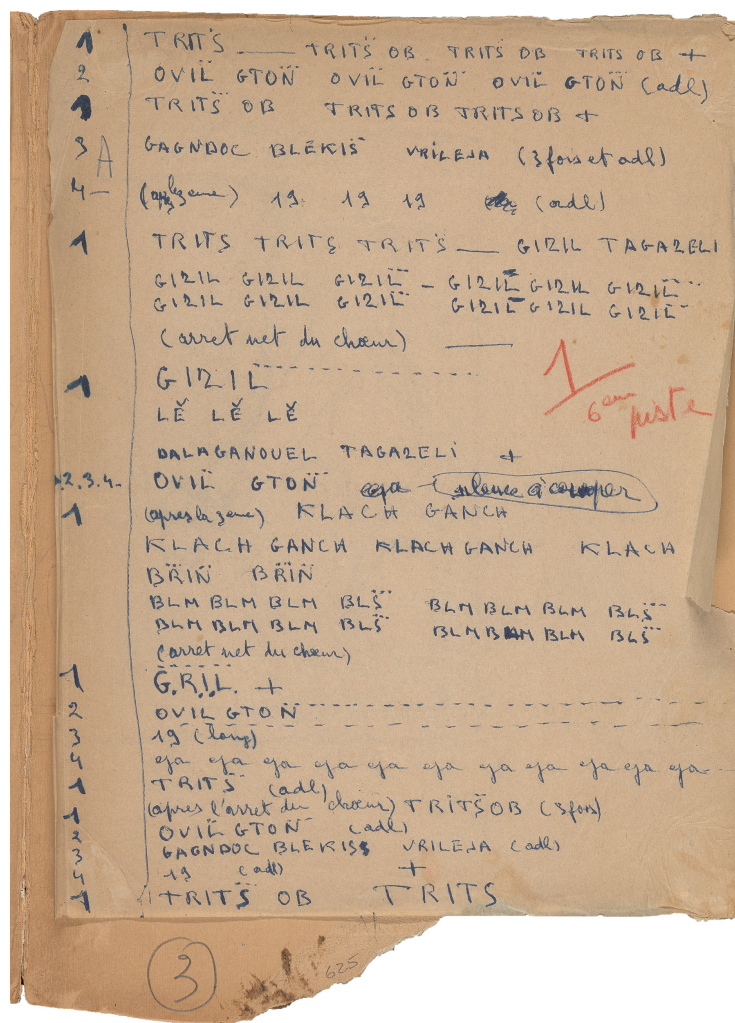 1 TRITS̈ —— TRITS̈ OB TRITS̈ OB TRITS OB +
2 OVIL̈ GTON̈ OVIL̈ GTON̈ OVIL̈ GTON (adl)
1 TRITS̈ OB TRITS OB TRITS OB +
3 GAGNDOC BLEKIS̈ VRILEJA (3 fois et adl)
A
4 — 19 19 19 (adl)
1 TRITS TRITS TRITS̈ — GIZIL TAGAZELI
GIZIL GIZIL GIZIL̈ – GIZIL̈ GIZIL GIZIL̈
GIZIL GIZIL GIZIL̈ GIZIL̈ GIZIL GIZIL̈
(arret net du chœur) ——
1 GIZIL ------------
LĔ LĔ LĔ
1
6eme piste
DALAGANOUEL TAGAZELI +
1.2.3.4.- OVIL̈ GTON̈ eja – silence à couper
1 (après la 3eme) KLACH GANCH
KLACH GANCH KLACH GANCH KLACH
BR̈IN̈ BR̈IN̈
BLM BLM BLM BLS̈ BLM BLM BLM BLS̈
BLM BLM BLM BLS̈ BLM BLM BLM BLS̈
(arret net du chœur)
1 G.R.I.L. +
2 OVIL GTON̈ ------------
3 19 (long) ------------
4 eja eja eja eja eja eja eja eja eja eja eja –
1 TRITS̈ (adl)
1 (après l'arret du chœur) TRITS̈ OB (3 fois)
2 OVIL̈ GTON̈ (adl)
3 GAGNDOC BLEKISS VRILEJA (adl)
4 19 (adl) +
1 TRITS̈ OB TRITS
3
625